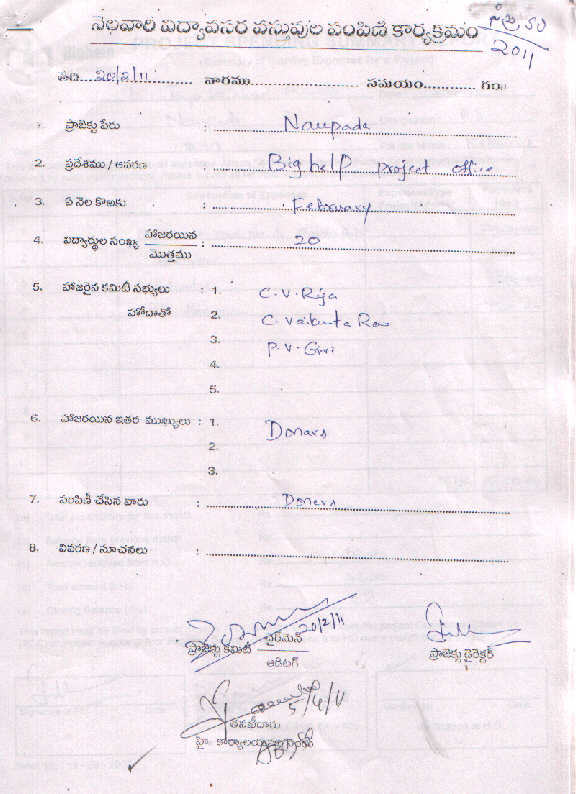 నెలవారి విద్యావసర వస్తువుల పంపిణి కార్యక్రమం
2011
తేది 20/2/11 వారము సమయం గం॥
1. ప్రాజెక్టు పేరు : Naupada
2. ప్రదేశము / ఆవరణ : Big help project office
3. ఏ నెల కొఱకు : February
4. విద్యార్థుల సంఖ్య హాజరయిన : 20
మొత్తము
5. హాజరైన కమిటీ సభ్యులు : 1. C.V. Raja
హోదాతో 2. C. Vaikunta Rao
3. P.V. Giri
4.
5.
6. హాజరయిన ఇతర ముఖ్యులు : 1. Donars
2.
3.
7. పంపిణీ చేసిన వారు : Doners
8. వివరణ / సూచనలు :
20/2/11
చైర్‌మెన్
ప్రాజెక్టు కమిటీ
ప్రాజెక్టు డైరెక్టర్
ఆడిటర్
5/4/11
తనిఖీదారు